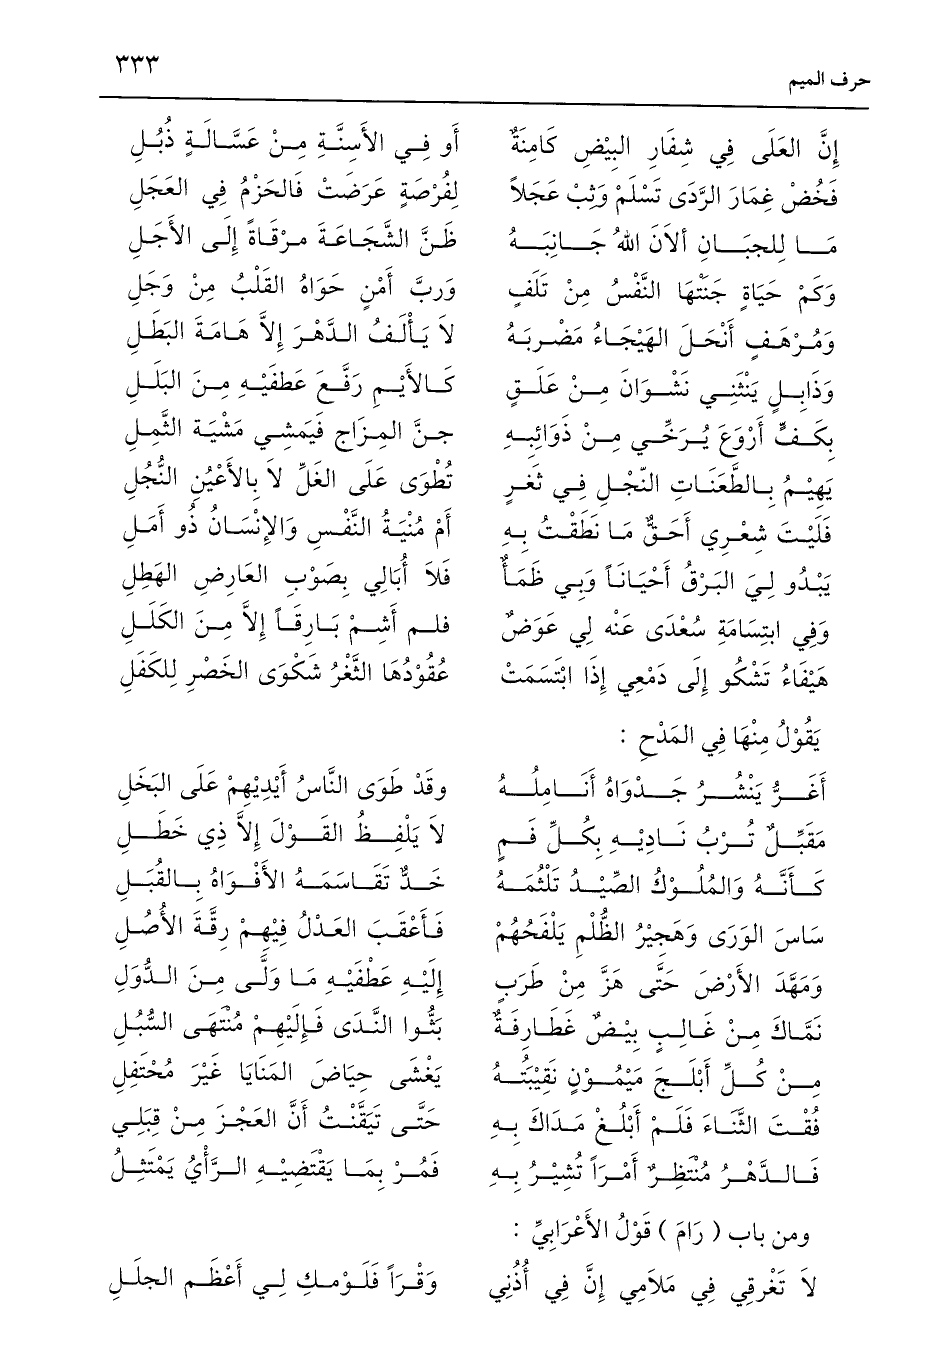 ٣٣٣
حرف الميم
إِنَّ العُلَى فِي شِفَارِ البِيْضِ كَامِنَةٌ أَو فِي الأَسِنَّةِ مِنْ عَسَّالَةٍ ذُبُلِ
فَخُضْ غِمَارَ الرَّدَى تَسْلَمْ وَثِبْ عَجَلاً لِفُرْصَةٍ عَرَضَتْ فَالحَزْمُ فِي العَجَلِ
مَا لِلجَبَانِ أَلاَنَ اللَّهُ جَانِبَهُ ظَنَّ الشَّجَاعَةَ مِرْقَاةً إِلَى الأَجَلِ
وَكَمْ حَيَاةٍ جَنَتْهَا النَّفْسُ مِنْ تَلَفٍ وَرُبَّ أَمْنٍ حَوَاهُ القَلْبُ مِنْ وَجَلِ
وَمُرْهَفٍ أَنْحَلَ الهَيْجَاءُ مَضْرِبَهُ لاَ يَأْلَفُ الدَّهْرَ إِلاَّ هَامَةَ البَطَلِ
وَذَابِلٍ يَنْثَنِي نَشْوَانَ مِنْ عَلَقٍ كَالأَيْمِ رَفَّعَ عِطْفَيْهِ مِنَ البَلَلِ
بِكَفِّ أَرْوَعَ يُرْخِي مِنْ ذَوَائِبِهِ جِنَّ المِرَاحِ فَيَمْشِي مَشْيَةَ الثَّمِلِ
يَهِيْمُ بِالطَّعَنَاتِ النُّجْلِ فِي ثُغَرٍ تُطْوَى عَلَى الغِلِّ لاَ بِالأَعْيُنِ النُّجُلِ
فَلَيْتَ شِعْرِي أَحَقٌّ مَا نَطَقْتُ بِهِ أَمْ مُنْيَةُ النَّفْسِ وَالإِنْسَانُ ذُو أَمَلِ
يَبْدُو لِيَ البَرْقُ أَحْيَانَاً وَبِي ظَمَأٌ فَلاَ أُبَالِي بِصَوْبِ العَارِضِ الهَطِلِ
وَفِي ابتِسَامَةِ سُعْدَى عَنْهُ لِي عَوَضٌ فلم أَشِمْ بَارِقَاً إِلاَّ مِنَ الكِلَلِ
هَيْفَاءُ تَشْكُو إِلَى دَمْعِي إِذَا ابْتَسَمَتْ عُقُوْدُهَا الثَّغْرُ شَكْوَى الخَصْرِ لِلكَفَلِ
يَقُوْلُ مِنْهَا فِي المَدْحِ :
أَغَرُّ يَنْشُرُ جَدْوَاهُ أَنَامِلُهُ وَقَدْ طَوَى النَّاسُ أَيْدِيْهِمْ عَلَى البَخَلِ
مُقَبِّلٌ تُرْبَ نَادِيْهِ بِكُلِّ فَمٍ لاَ يَلْفِظُ القَوْلَ إِلاَّ ذِي خَطَلِ
كَأَنَّهُ وَالمُلُوْكُ الصِّيْدُ تَلْثُمُهُ خَدٌّ تَقَاسَمَهُ الأَفْوَاهُ بِالقُبَلِ
سَاسَ الوَرَى وَهَجِيْرُ الظُّلْمِ يَلْفَحُهُمْ فَأَعْقَبَ العَدْلُ فِيْهِمْ رِقَّةَ الأُصُلِ
وَمَهَّدَ الأَرْضَ حَتَّى هَزَّ مِنْ طَرَبٍ إِلَيْهِ عِطْفَيْهِ مَا وَلَّى مِنَ الدُّوَلِ
نَمَّاكَ مِنْ غَالِبٍ بِيْضٌ غَطَارِفَةٌ بَثُّوا النَّدَى فَإِلَيْهِمْ مُنْتَهَى السُّبُلِ
مِنْ كُلِّ أَبْلَجَ مَيْمُوْنٍ نَقِيْبَتُهُ يَغْشَى حِيَاضَ المَنَايَا غَيْرَ مُحْتَفِلِ
فُقْتَ الثَّنَاءَ فَلَمْ أَبْلُغْ مَدَاكَ بِهِ حَتَّى تَيَقَّنْتُ أَنَّ العَجْزَ مِنْ قِبَلِي
فَالدَّهْرُ مُنْتَظِرٌ أَمْرَاً تُشِيْرُ بِهِ فَمُرْ بِمَا يَقْتَضِيْهِ الرَّأْيُ يَمْتَثِلُ
ومن باب ( رَامَ ) قَوْلُ الأَعْرَابِيِّ :
لاَ تَعْرِقِي فِي مَلاَمِي إِنَّ فِي أُذُنِي وَقْرَاً فَلَوْمكِ لِي أَعْظَم الجللِ